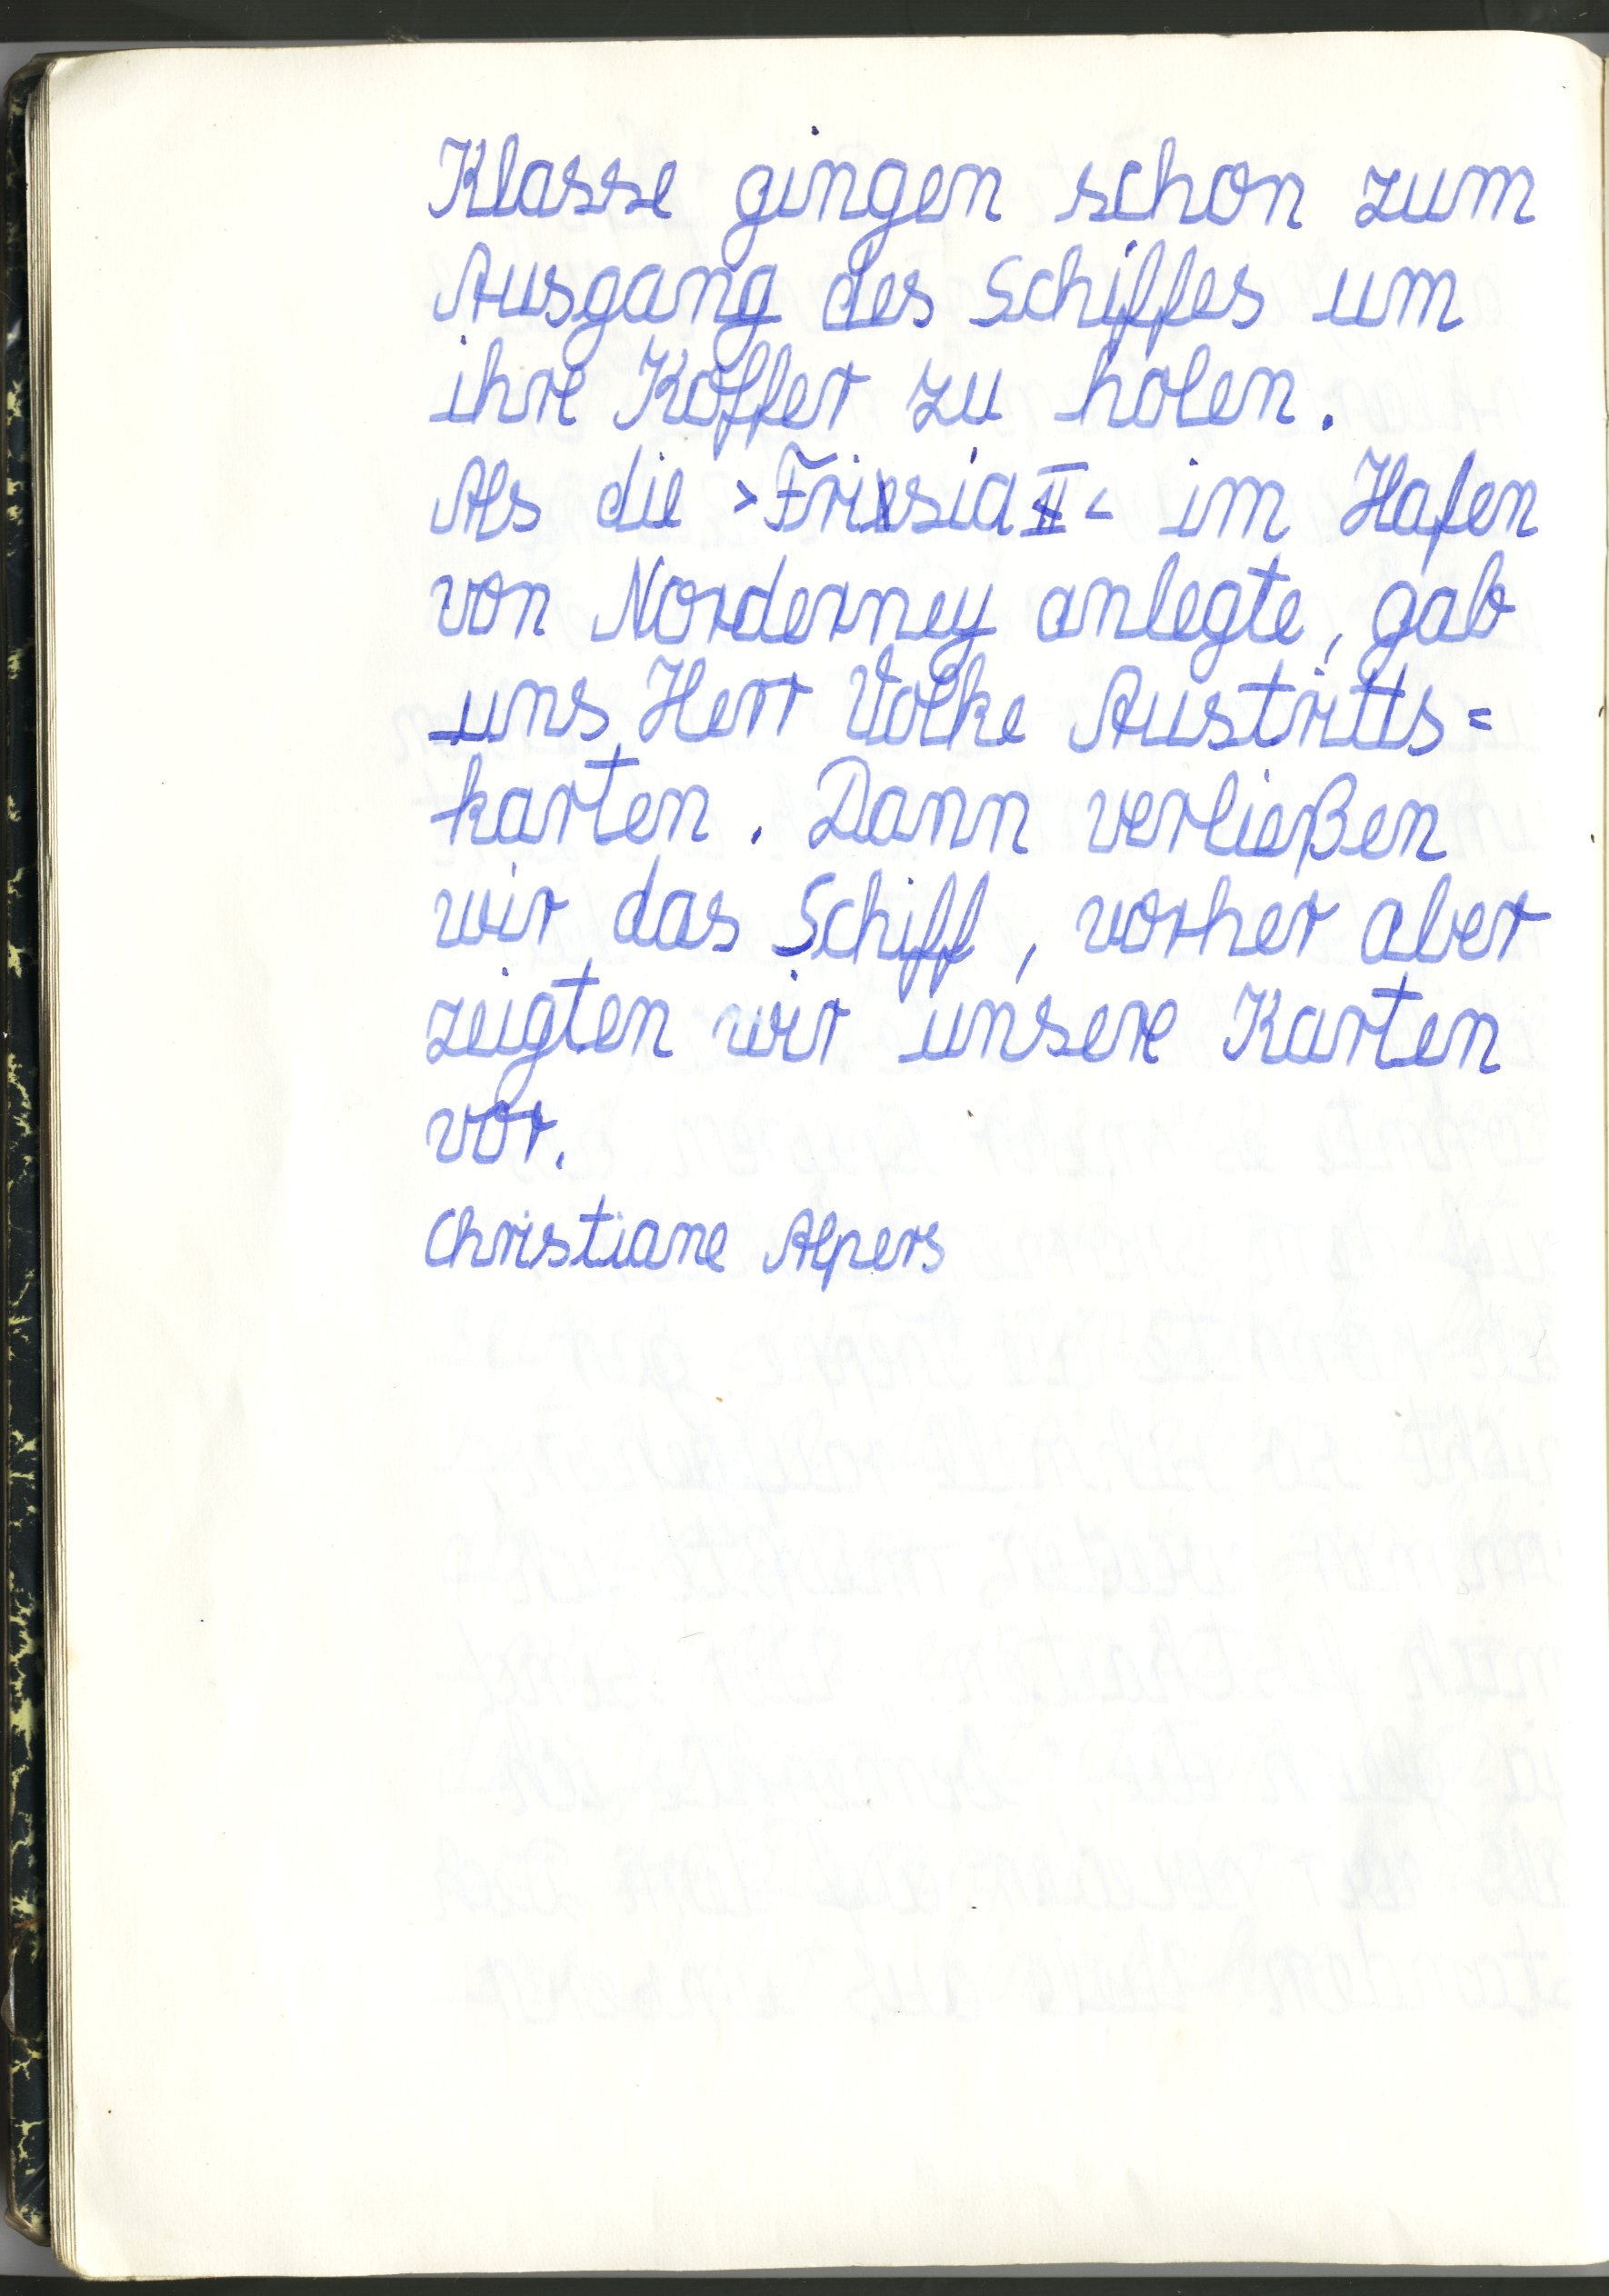 Klasse gingen schon zum
Ausgang des Schiffes um
ihre Koffer zu holen.
Als die >Frisia II< im Hafen
von Norderney anlegte, gab
uns Herr Volke Austritts=
karten. Dann verließen
wir das Schiff, vorher aber
zeigten wir unsere Karten
vor.
Christiane Alpers